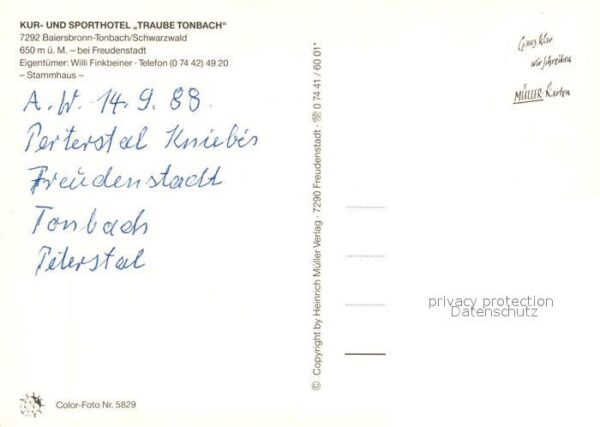 KUR- UND SPORTHOTEL „TRAUBE TONBACH"
7292 Baiersbronn-Tonbach/Schwarzwald
650 m ü. M. – bei Freudenstadt
Eigentümer: Willi Finkbeiner · Telefon (0 74 42) 49 20
– Stammhaus –
A. W. 14. 9. 88.
Perterstal Kniebis
Freudenstadt
Tonbach
Peterstal
Color-Foto Nr. 5829
© Copyright by Heinrich Müller Verlag · 7290 Freudenstadt · ☏ 0 74 41 / 60 01*
Ganz klar
wir schreiben
MÜLLER-Karten
privacy protection
Datenschutz